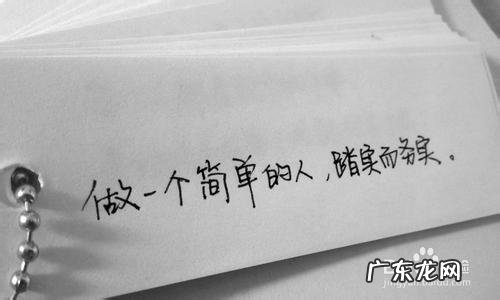 做一个简单的人,踏实而务实。
jingyan.baidu.com
广东龙网